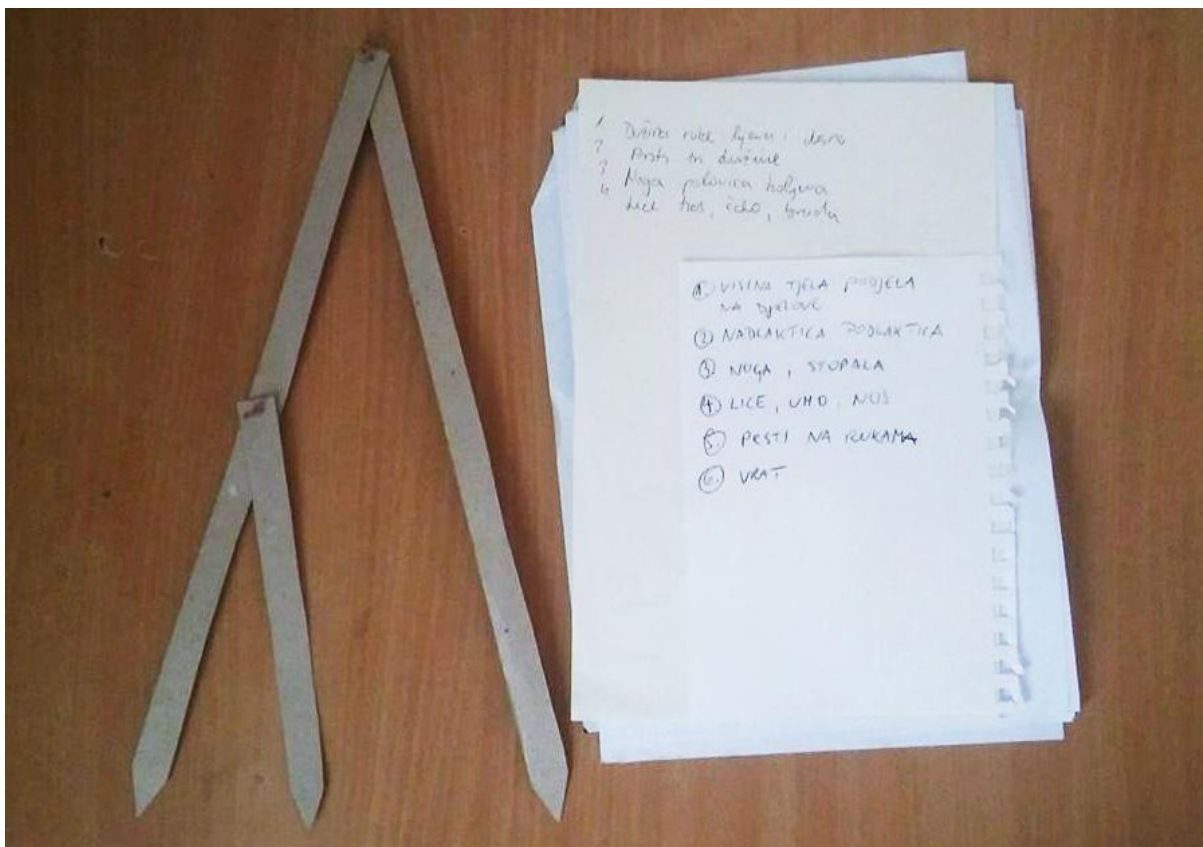 1 Dužina ruke lijeva i desna
2 Prsti tri dužine
3 Noga polovica koljena
4 Lice nos, čelo, brada
1. VISINA TJELA PODJELA
NA DJELOVE
2 NADLAKTICA PODLAKTICA
3 NOGA, STOPALA
4 LICE, UHO, NOS
5. PRSTI NA RUKAMA
6. VRAT